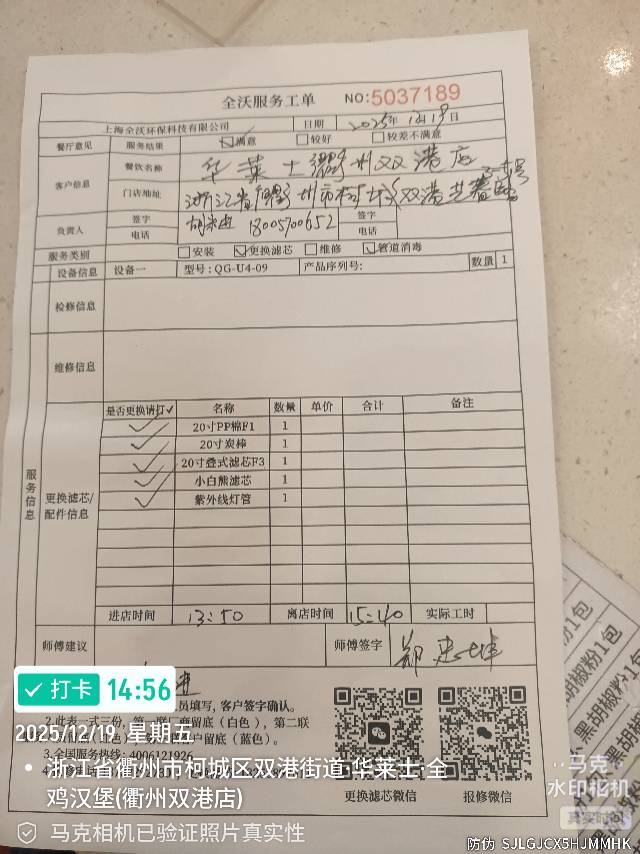 全沃服务工单 NO:5037189
上海全沃环保科技有限公司 日期 2025年12月19日
餐厅意见 服务结果 ☑满意 □较好 □较差不满意
客户信息 餐饮名称 华莱士衢州双港店
门店地址 浙江省衢州市柯城双港
负责人 签字 签字
电话 18005700652 电话
服务类别 □安装 ☑更换滤芯 □维修 ☑管道消毒
设备信息 设备一 型号:QG-U4-09 产品序列号: 数量 1
检修信息
维修信息
服务信息
更换滤芯/配件信息
是否更换请打✓ 名称 数量 单价 合计 备注
✓ 20寸PP棉F1 1
✓ 20寸炭棒 1
✓ 20寸叠式滤芯F3 1
✓ 小白熊滤芯 1
✓ 紫外线灯管 1
进店时间 13:50 离店时间 15:40 实际工时
师傅建议 师傅签字
员填写，客户签字确认。
2.此表一式三份，第一联厂商留底（白色），第二联
客户留底（蓝色）。
3.全国服务热线:4006121926
更换滤芯微信 报修微信
打卡 14:56
2025/12/19 星期五
浙江省衢州市柯城区双港街道·华莱士·全
鸡汉堡(衢州双港店)
马克相机已验证照片真实性
马克
水印相机
真实时间
防伪 SJLGJCX5HJMMHK
胡椒粉1包
黑胡椒粉1包
黑胡椒粉1包